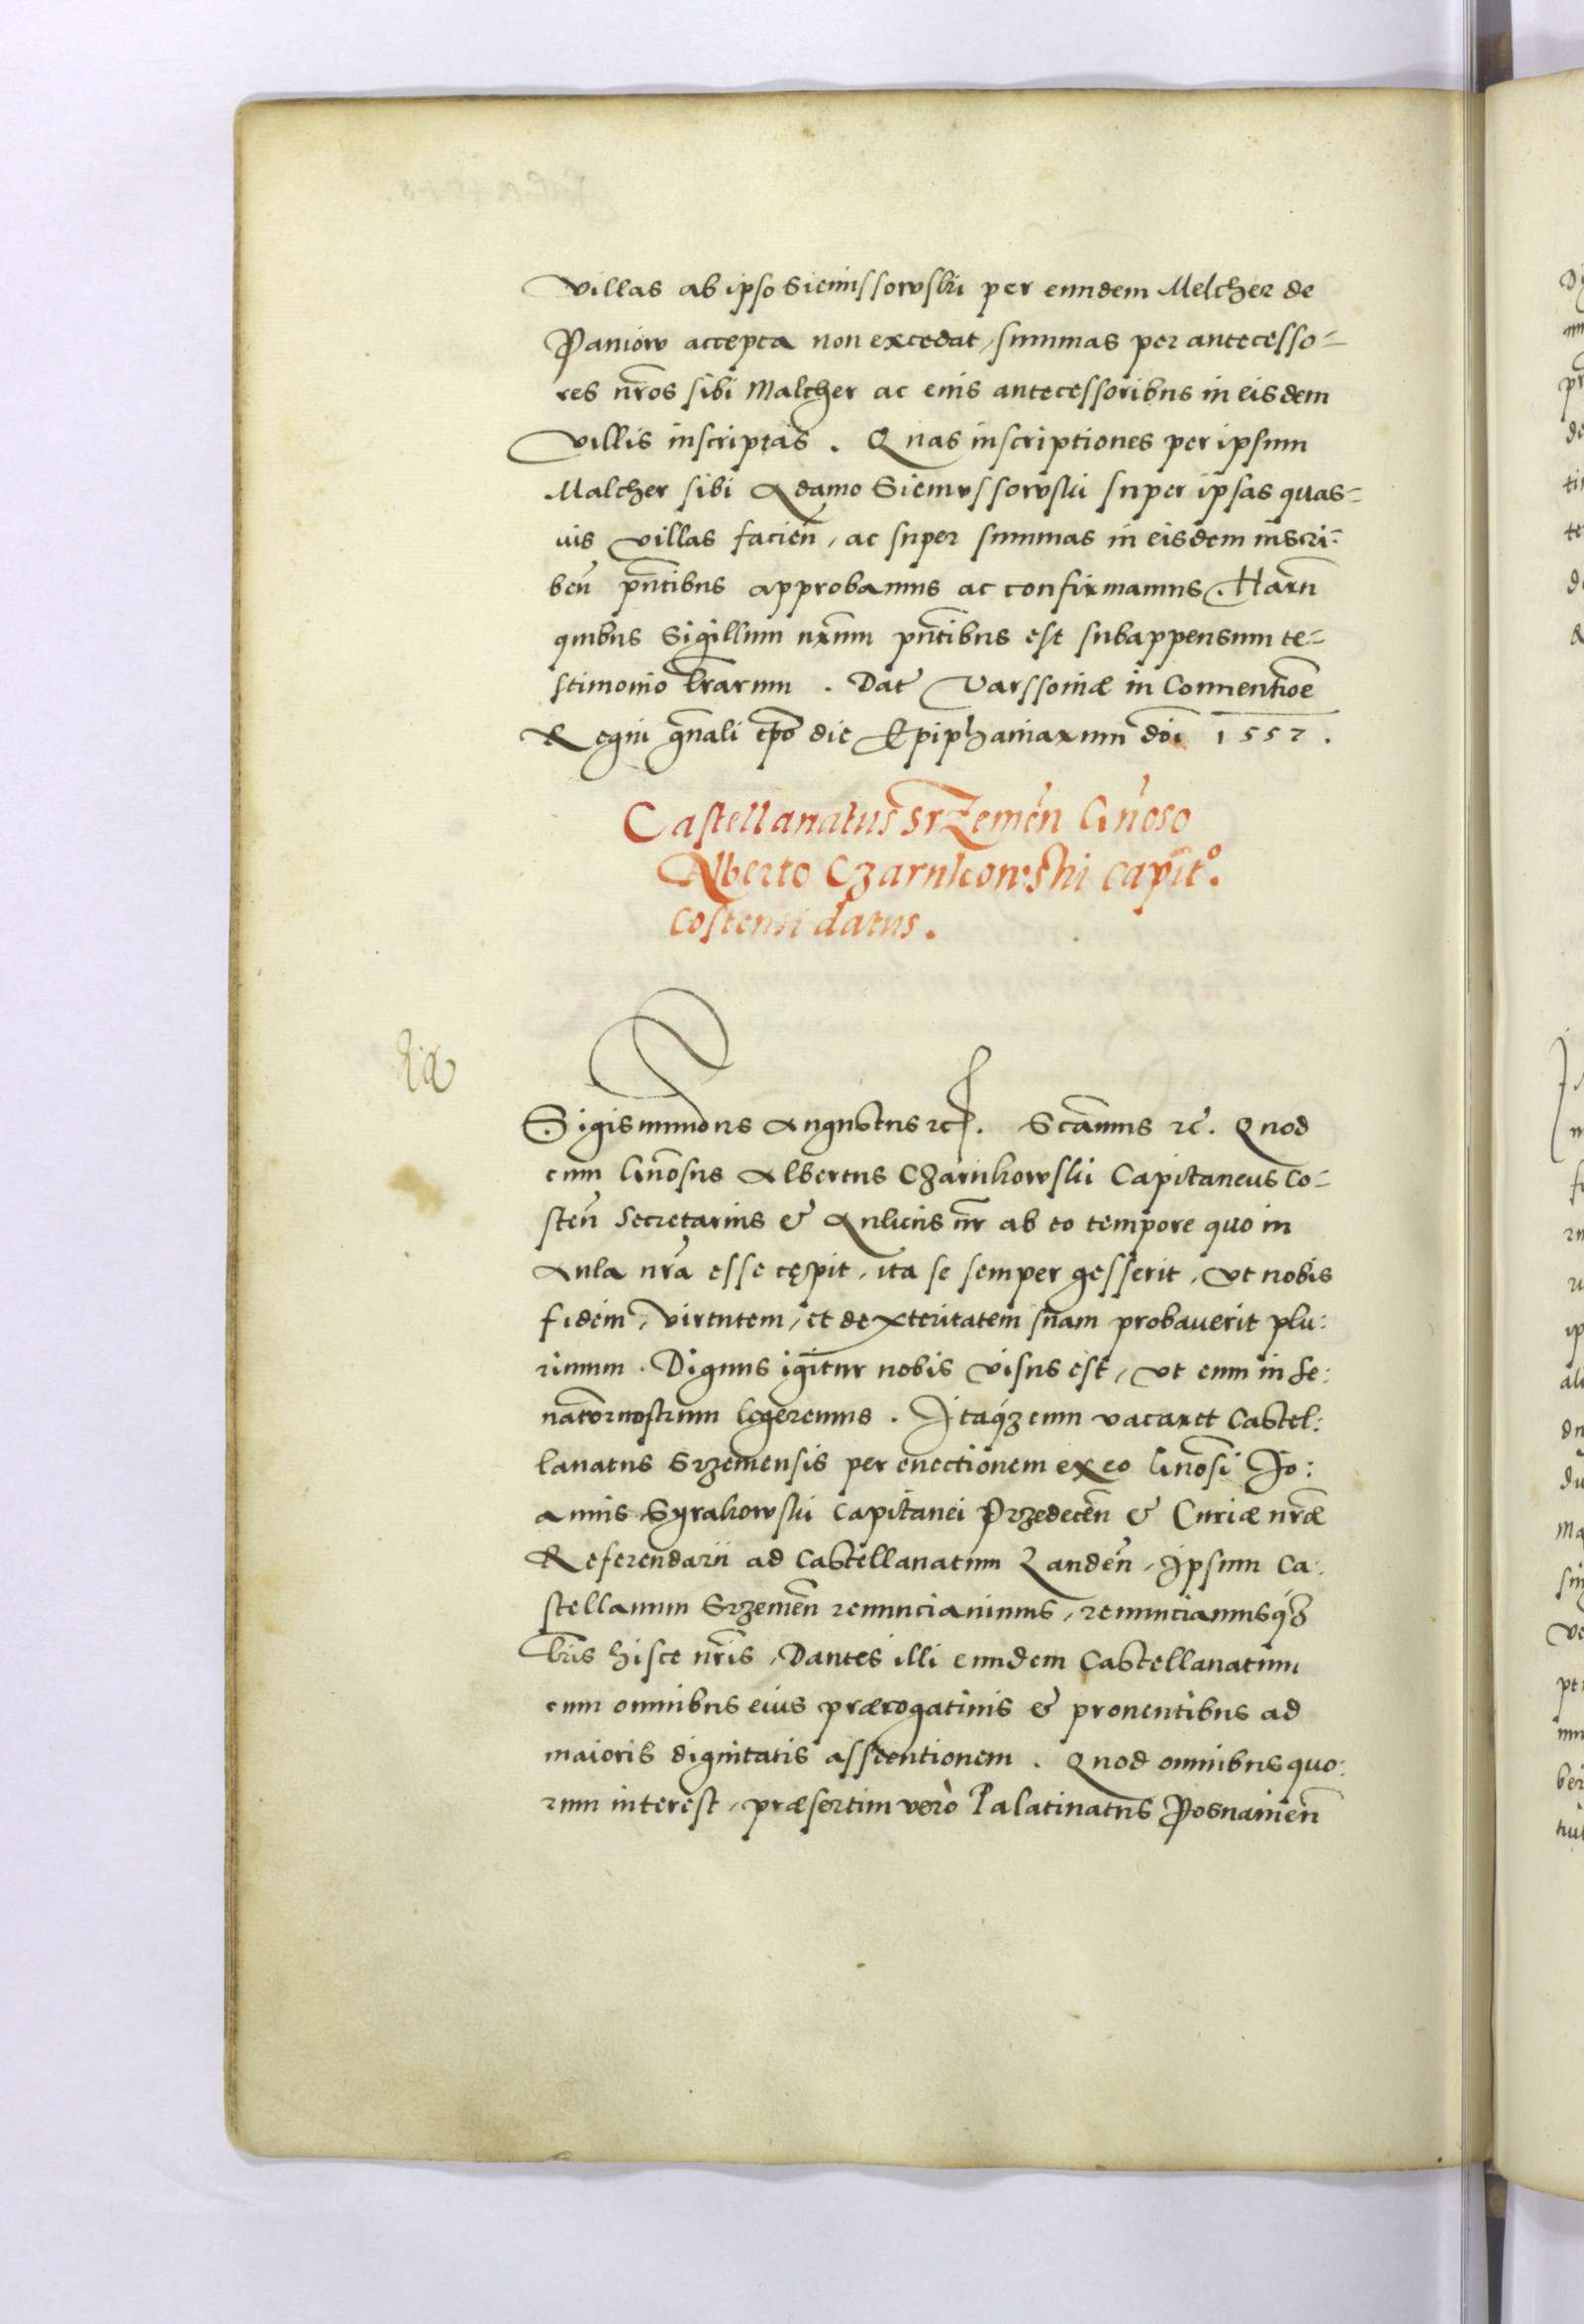 villas ab ipso Siemussowski per eundem Melcher de
Paniow accepta non excedat, summas per antecesso=
res nr̃os sibi Malcher ac eius antecessoribus in eisdem
villis inscriptas. Quas inscriptiones per ipsum
Malcher sibi Adamo Siemussowski super ipsas quas=
uis villas facien̄, ac super summas in eisdem inscri:
ben̄ pn̄tibus approbamus ac confirmamus. Harū
quibus Sigillum nr̄um pn̄tibus est subappensum te=
stimonio l̄rarum. Dat̄ Varssouiæ in Conuentiōe
Regni gn̄ali ip̄o die Epiphaniarum dn̄i 1557.
Castellanatus Srzemen̄ Gn̄oso
Alberto Czarnkowski capit°.
Costensi datus.
Sigismundus Augustus rc. Sc̄amus rc̄. Quod
cum Gn̄osus Albertus Czarnkowski Capitaneus Co=
sten̄ Secretarius & Aulicus nr̄ ab eo tempore quo in
Aula nr̄a esse cępit, ita se semper gesserit, vt nobis
fidem, virtutem, et dexteritatem suam probauerit plu:
rimum. Dignus igitur nobis visus est, vt eum in Se:
nator̄ nostrum legeremus. Itaq̃ cum vacaret Castel:
lanatus Srzemensis per euectionem ex eo Gn̄osi Jo:
annis Syrakowski Capitanei Przedecen̄ & Curiæ nr̄æ
Referendarii ad Castellanatum Landen̄, Ipsum Ca:
stellanum Srzemen̄ renunciauimus, renunciamusq̃
l̄ris hisce nr̄is, Dantes illi eundem Castellanatum
cum omnibus eius prærogatiuis & prouentibus ad
maioris dignitatis assecutionem. Quod omnibus quo:
rum interest, præsertim verò Palatinatus Posnanien̄